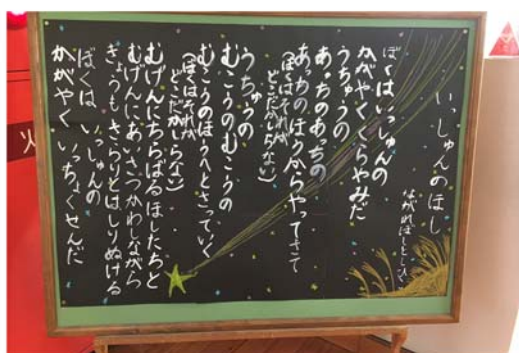 いっしゅんのほし
ながれぼし
ぼくはいっしゅんの
かがやくくらやみだ
うちゅうの
あっちのあっちの
あっちのほうからやってきて
(ぼくはそれが
どこだかしらない)
うちゅうの
むこうのむこうの
むこうのほうへとさっていく
(ぼくはそれが
どこだかしらない)
むげんにちらばるほしたちと
むげんにあいさつかわしながら
きょうもきらりとはしりぬける
ぼくは いっしゅんの
かがやく いっちょくせんだ
火